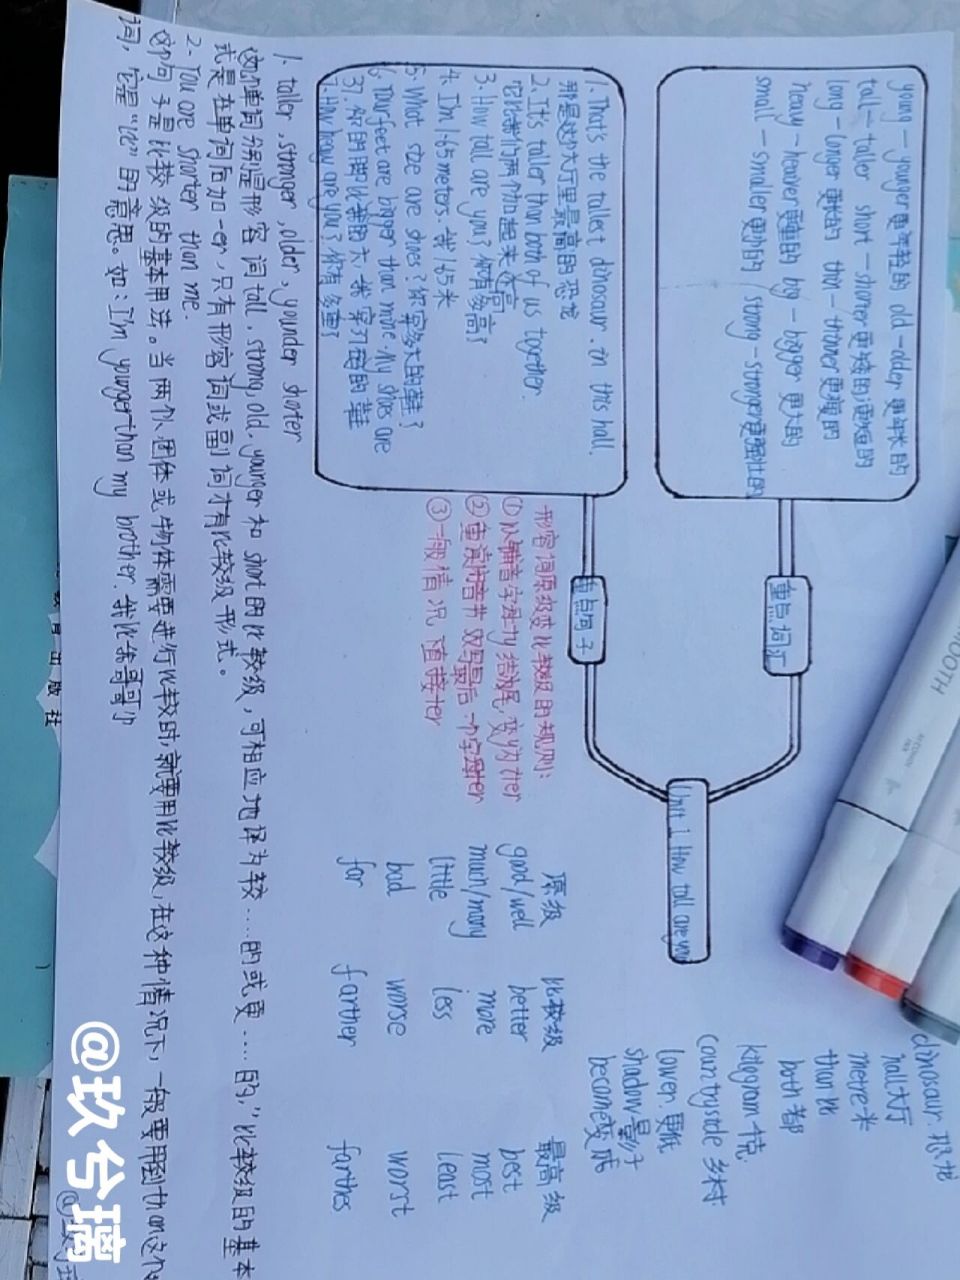 young - younger更年轻的 old - older 更年长的
tall - taller short - shorter更矮的;更短的
long - longer 更长的 thin - thinner更瘦的
heavy - heavier更重的 big - bigger 更大的
small - smaller更小的 strong - stronger更强壮的
重点词汇
1. That's the tallest dinosaur in this hall.
那是这个大厅里最高的恐龙
2. It's taller than both of us together.
它比我们两个加起来还高
3. How tall are you? 你有多高?
4. I'm 1.65 meters. 我1.65米
5. What size are shoes? 你穿多大的鞋?
6. Your feet are bigger than mine. My shoes are
37. 你的脚比我的大,我穿37码的鞋
7. How heavy are you? 你有多重?
重点句子
Unit 1 How tall are you
形容词原级变比较级的规则:
①以辅音字母y结尾,变y为i+er
②重读闭音节 双写最后一个字母+er
③一般情况 直接+er
原级 比较级 最高级
good/well better best
much/many more most
little less least
bad worse worst
far farther farthes
dinosaur 恐龙
hall大厅
metre米
than比
both都
kilogram千克
countryside 乡村
lower 更低
shadow影子
become变成
1. taller, stronger, older, younder shorter
这几单词分别是形容词tall, strong, old, younger 和 short的比较级,可相应地译为较……的或更……的,"比较级的基本
式是在单词后加-er,只有形容词或副词才有比较级形式。
2. You are shorter than me.
这个句子是比较级的基本用法。当两个人、团体或物体需要进行比较时,就要用比较级,在这种情况下,一般要用到than这个
词,它是"比"的意思。如:I'm younger than my brother. 我比我哥哥小
出版社
@玖兮璃